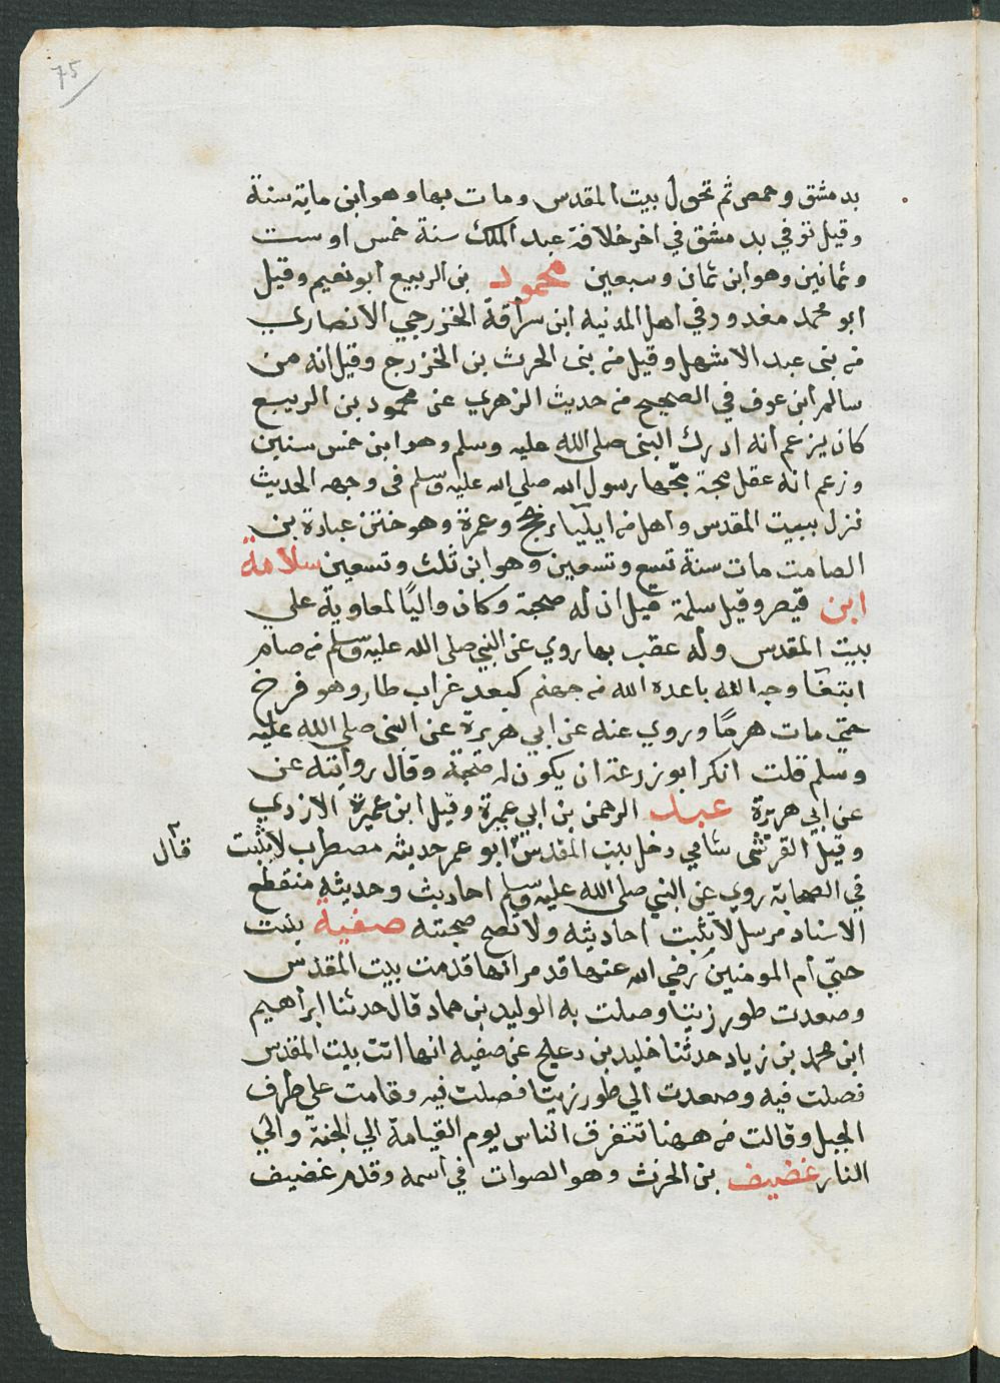 75
بدمشق وحمص ثم تحول بيت المقدس ومات بها وهو ابن ماية سنة
وقيل توفي بدمشق في اخر خلافة عبد الملك سنة خمس او ست
وثمانين وهو ابن ثمان وسبعين محمود بن الربيع ابو نعيم وقيل
ابو محمد معدود في اهل المدنيه ابن سراقة الخزرجي الانصاري
من بني عبد الاشهل وقيل من بني الحرث بن الخزرج وقيل انه من
سالم ابن عوف في الصحيح من حديث الزهري عن محمود بن الربيع
كان يزعم انه ادرك النبي صلى الله عليه وسلم وهو ابن خمس سنين
وزعم انه عقل مجة مجها رسول الله صلي الله عليه وسلم في وجهه الحديث
نزل ببيت المقدس واهل من ايلياء بحج وعمرة وهو ختن عبادة بن
الصامت مات سنة تسع وتسعين وهو ابن ثلث وتسعين سلامة
ابن قيصر وقيل سلمة قيل ان له صحبة وكان واليا لمعاوية علي
بيت المقدس وله عقب بها روي عن النبي صلى الله عليه وسلم من صام
ابتغآ وجه الله باعده الله من جهنم كبعد غراب طار وهو فرخ
حتي مات هرما وروي عنه عن ابي هريرة عن النبي صلي الله عليه
وسلم قلت انكر ابو زرعة ان يكون له صحبة وقال روايته عن
عن ابي هريرة عبد الرحمن بن ابي عميرة وقيل ابن عميرة الازدي
وقيل القرشي شامي دخل بيت المقدس ابو عمر حديثه مضطرب لا يثبت
قال
في الصحابة روي عن النبي صلى الله عليه وسلم احاديث وحديثه منقطع
الاسناد مرسل لا يثبت احاديثه ولا تصح صحبته صفية بنت
حيي ام المومنين رضي الله عنها قدم انها قدمت بيت المقدس
وصعدت طور زيتا وصلت به الوليد بن حماد قال حدثنا ابراهيم
ابن محمد بن زياد حدثنا خليد بن دعلج عن صفيه انها اتت بيت المقدس
فصلت فيه وصعدت الي طور زيتا فصلت فيه وقامت علي طرف
الجبل وقالت من ههنا تتفرق الناس يوم القيامة الي الجنة والي
النار غضيف بن الحرث وهو الصواب في اسمه وقدم غضيف